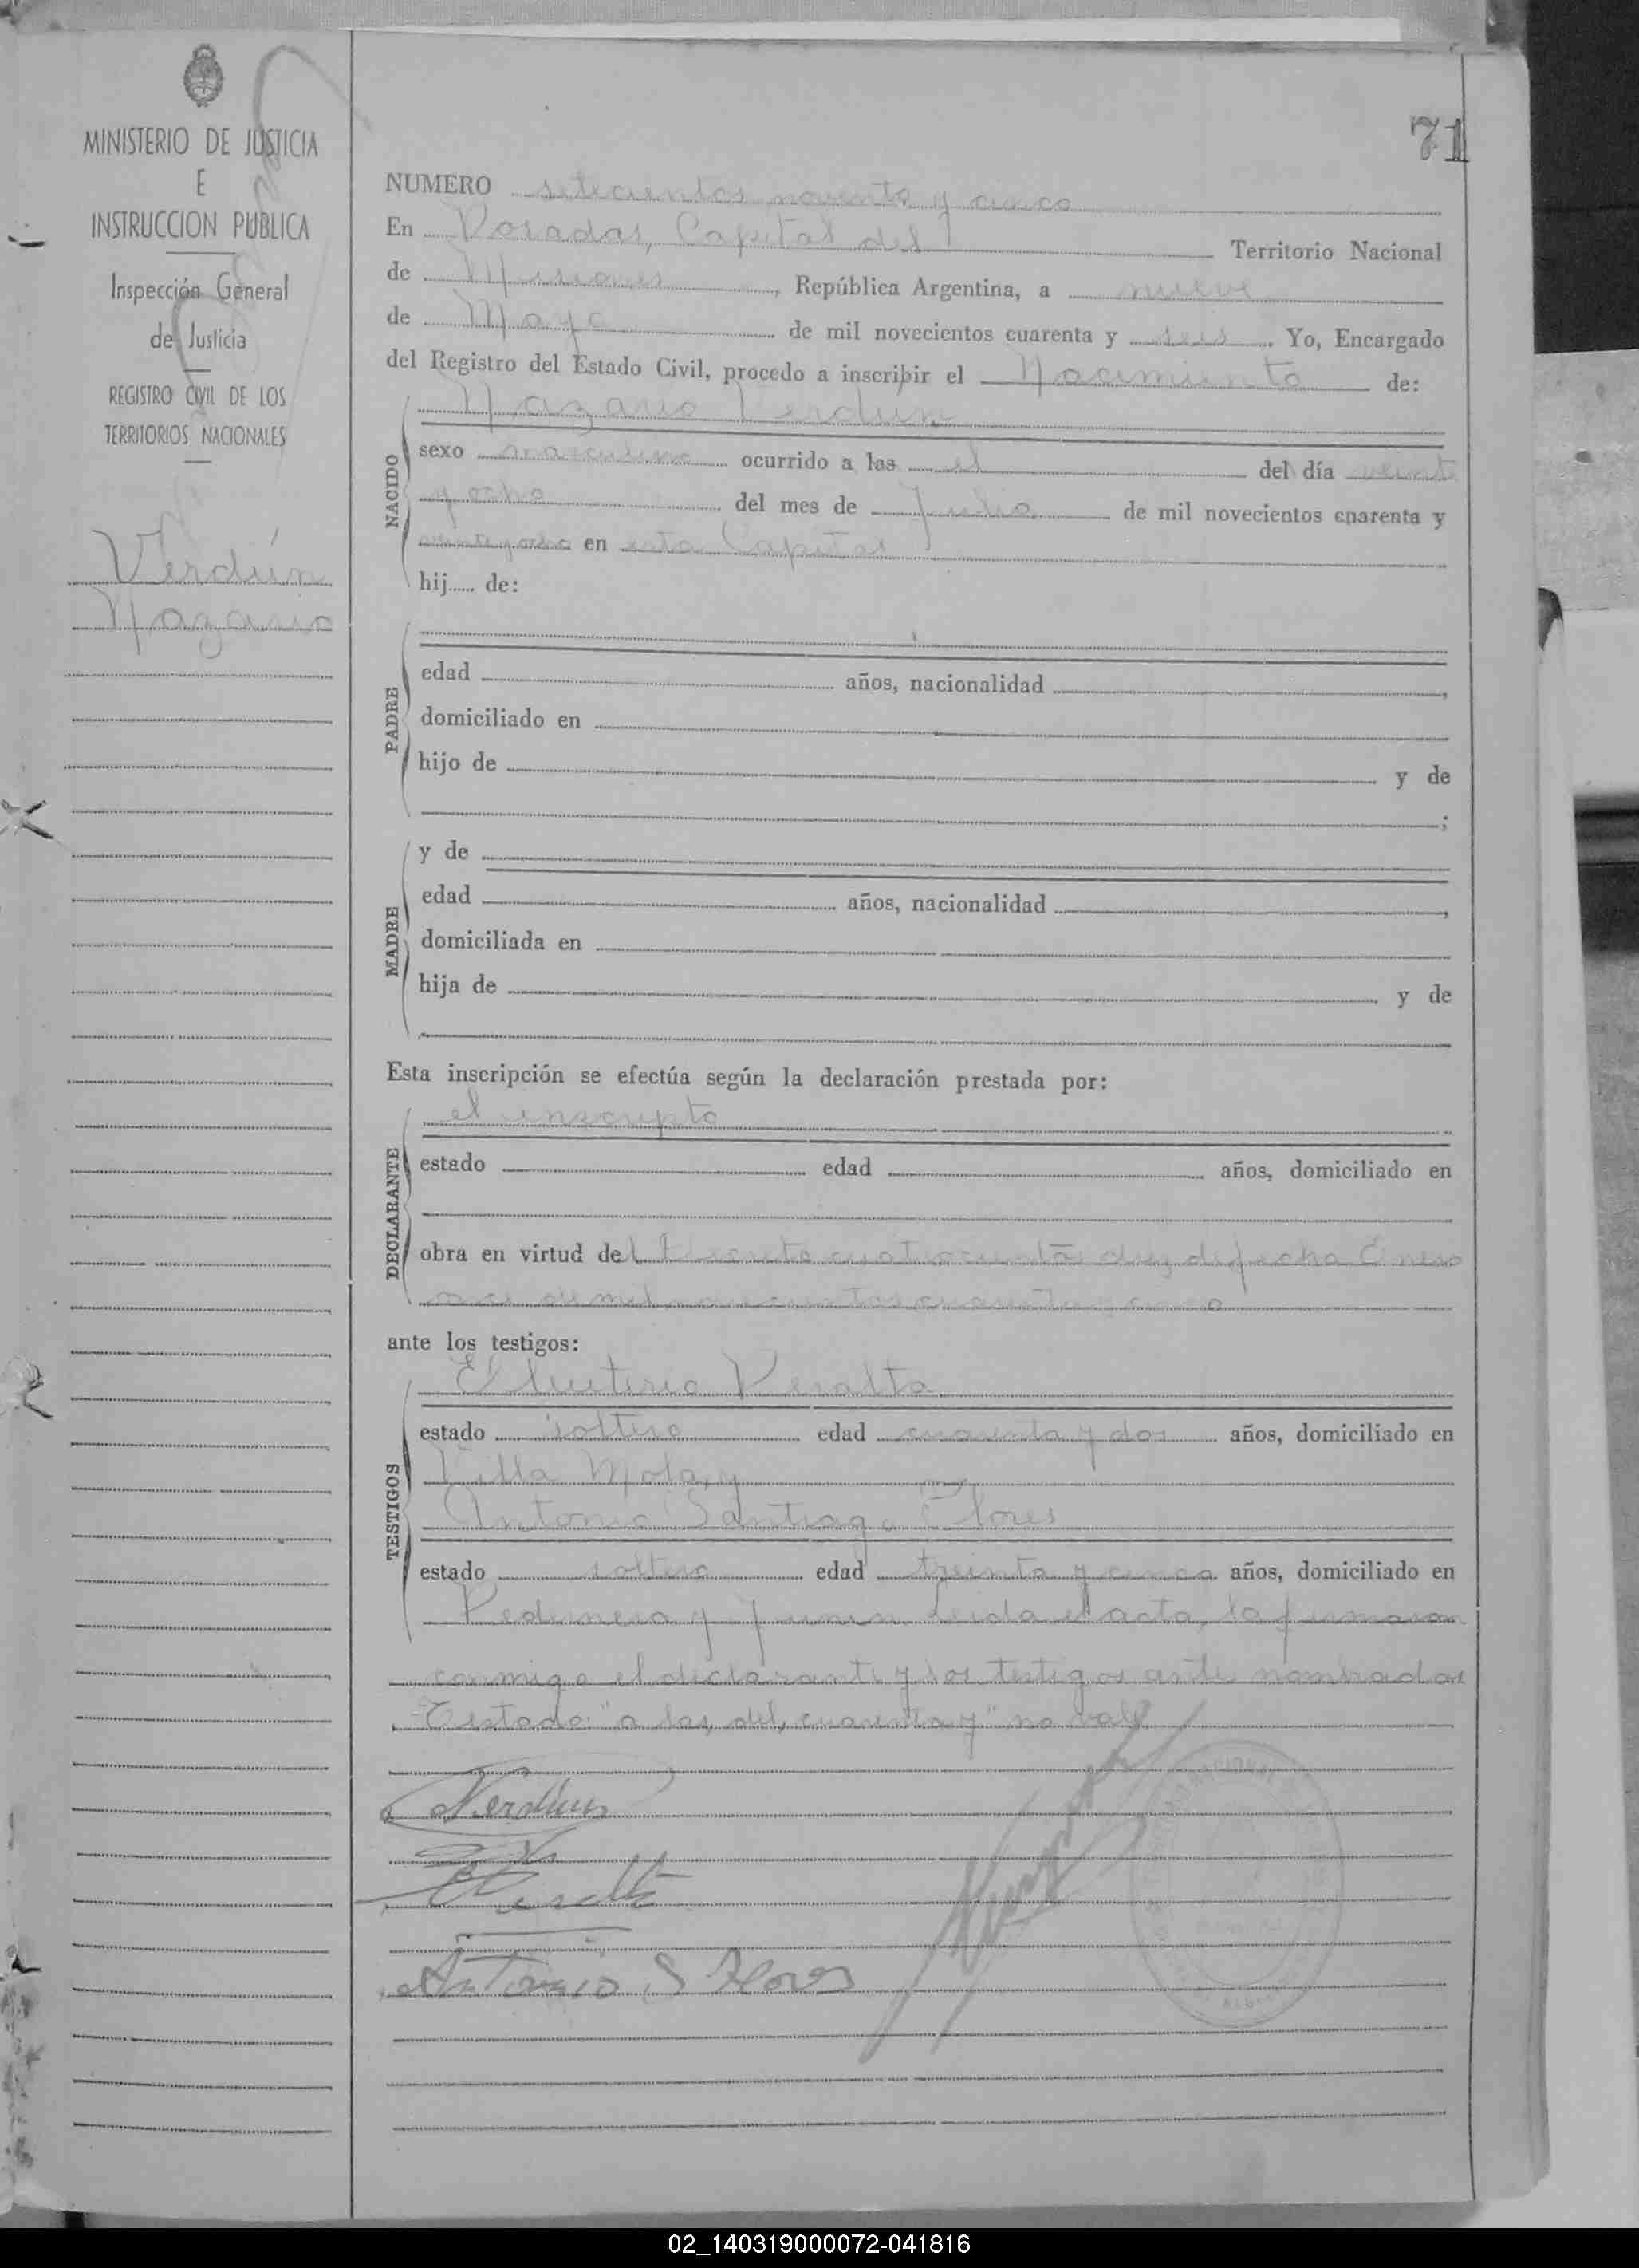 71
MINISTERIO DE JUSTICIA
E
INSTRUCCION PUBLICA
Inspección General
de Justicia
REGISTRO CIVIL DE LOS
TERRITORIOS NACIONALES
Verdún
Nazario
NUMERO setecientos noventa y cinco
En Posadas, Capital del Territorio Nacional
de Misiones, República Argentina, a nueve
de Mayo de mil novecientos cuarenta y seis. Yo, Encargado
del Registro del Estado Civil, procedo a inscribir el Nacimiento de:
NACIDO
Nazario Verdún
sexo masculino ocurrido a las el del día veinti
y ocho del mes de Julio de mil novecientos cuarenta y
veinte y ocho en esta Capital
hij...... de:
PADRE
edad años, nacionalidad ,
domiciliado en
hijo de y de
;
MADRE
y de
edad años, nacionalidad ,
domiciliada en
hija de y de
Esta inscripción se efectúa según la declaración prestada por:
DECLARANTE
el inscripto
estado edad años, domiciliado en
obra en virtud del Decreto cuatrocientos diez de fecha Enero
once de mil novecientos cuarenta y cinco
ante los testigos:
TESTIGOS
Eleuterio Peralta
estado soltero edad cuarenta y dos años, domiciliado en
Villa Mola, y
Antonio Santiago Flores
estado soltero edad treinta y cinco años, domiciliado en
Pedernera y Junin. Leida el acta, la firmaron
conmigo el declarante y los testigos ante nombrados
Testado: "a las, del, cuarenta y" no vale
NVerdun
E Peralta
Antonio S Flores
02_140319000072-041816